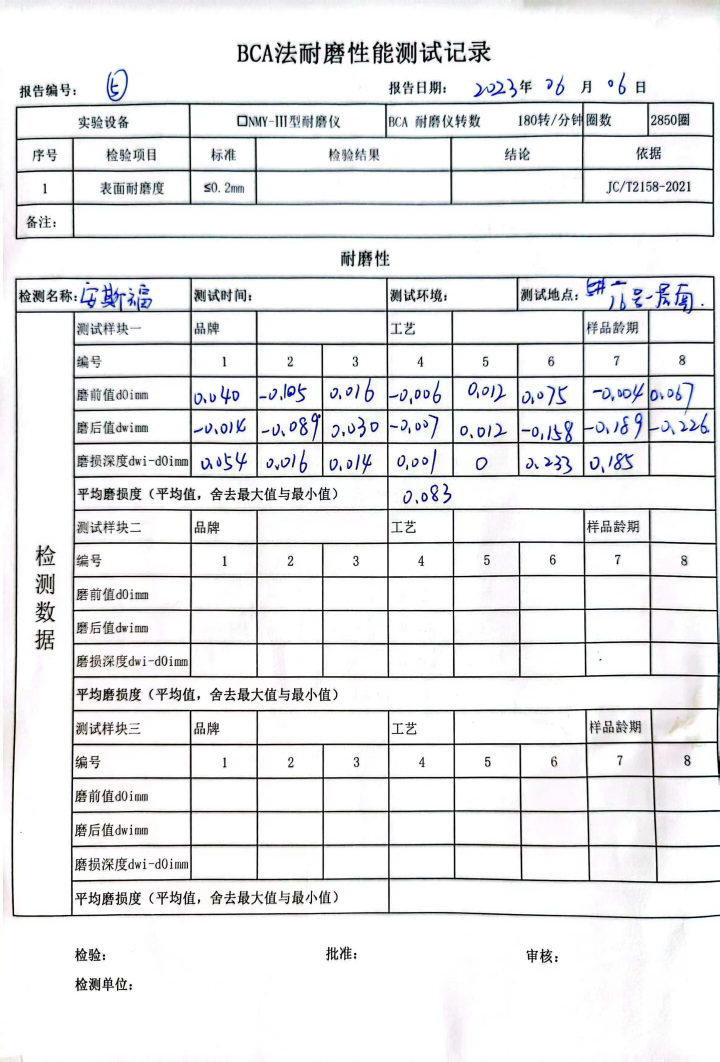 BCA法耐磨性能测试记录
报告编号: ⑤ 报告日期: 2023年 06 月 06 日
实验设备 □NMY-III型耐磨仪 BCA 耐磨仪转数 180转/分钟 圈数 2850圈
序号 检验项目 标准 检验结果 结论 依据
1 表面耐磨度 ≤0.2mm JC/T2158-2021
备注:
耐磨性
检测名称: 安斯福 测试时间: 测试环境: 测试地点: 16号一层南
检测数据
测试样块一 品牌 工艺 样品龄期
编号 1 2 3 4 5 6 7 8
磨前值d0imm 0.040 -0.105 0.016 -0.006 0.012 0.075 -0.004 0.067
磨后值dwimm -0.014 -0.089 0.030 -0.007 0.012 -0.158 -0.189 -0.226
磨损深度dwi-d0imm 0.054 0.016 0.014 0.001 0 0.233 0.185
平均磨损度（平均值，舍去最大值与最小值） 0.083
测试样块二 品牌 工艺 样品龄期
编号 1 2 3 4 5 6 7 8
磨前值d0imm
磨后值dwimm
磨损深度dwi-d0imm
平均磨损度（平均值，舍去最大值与最小值）
测试样块三 品牌 工艺 样品龄期
编号 1 2 3 4 5 6 7 8
磨前值d0imm
磨后值dwimm
磨损深度dwi-d0imm
平均磨损度（平均值，舍去最大值与最小值）
检验: 批准: 审核:
检测单位: